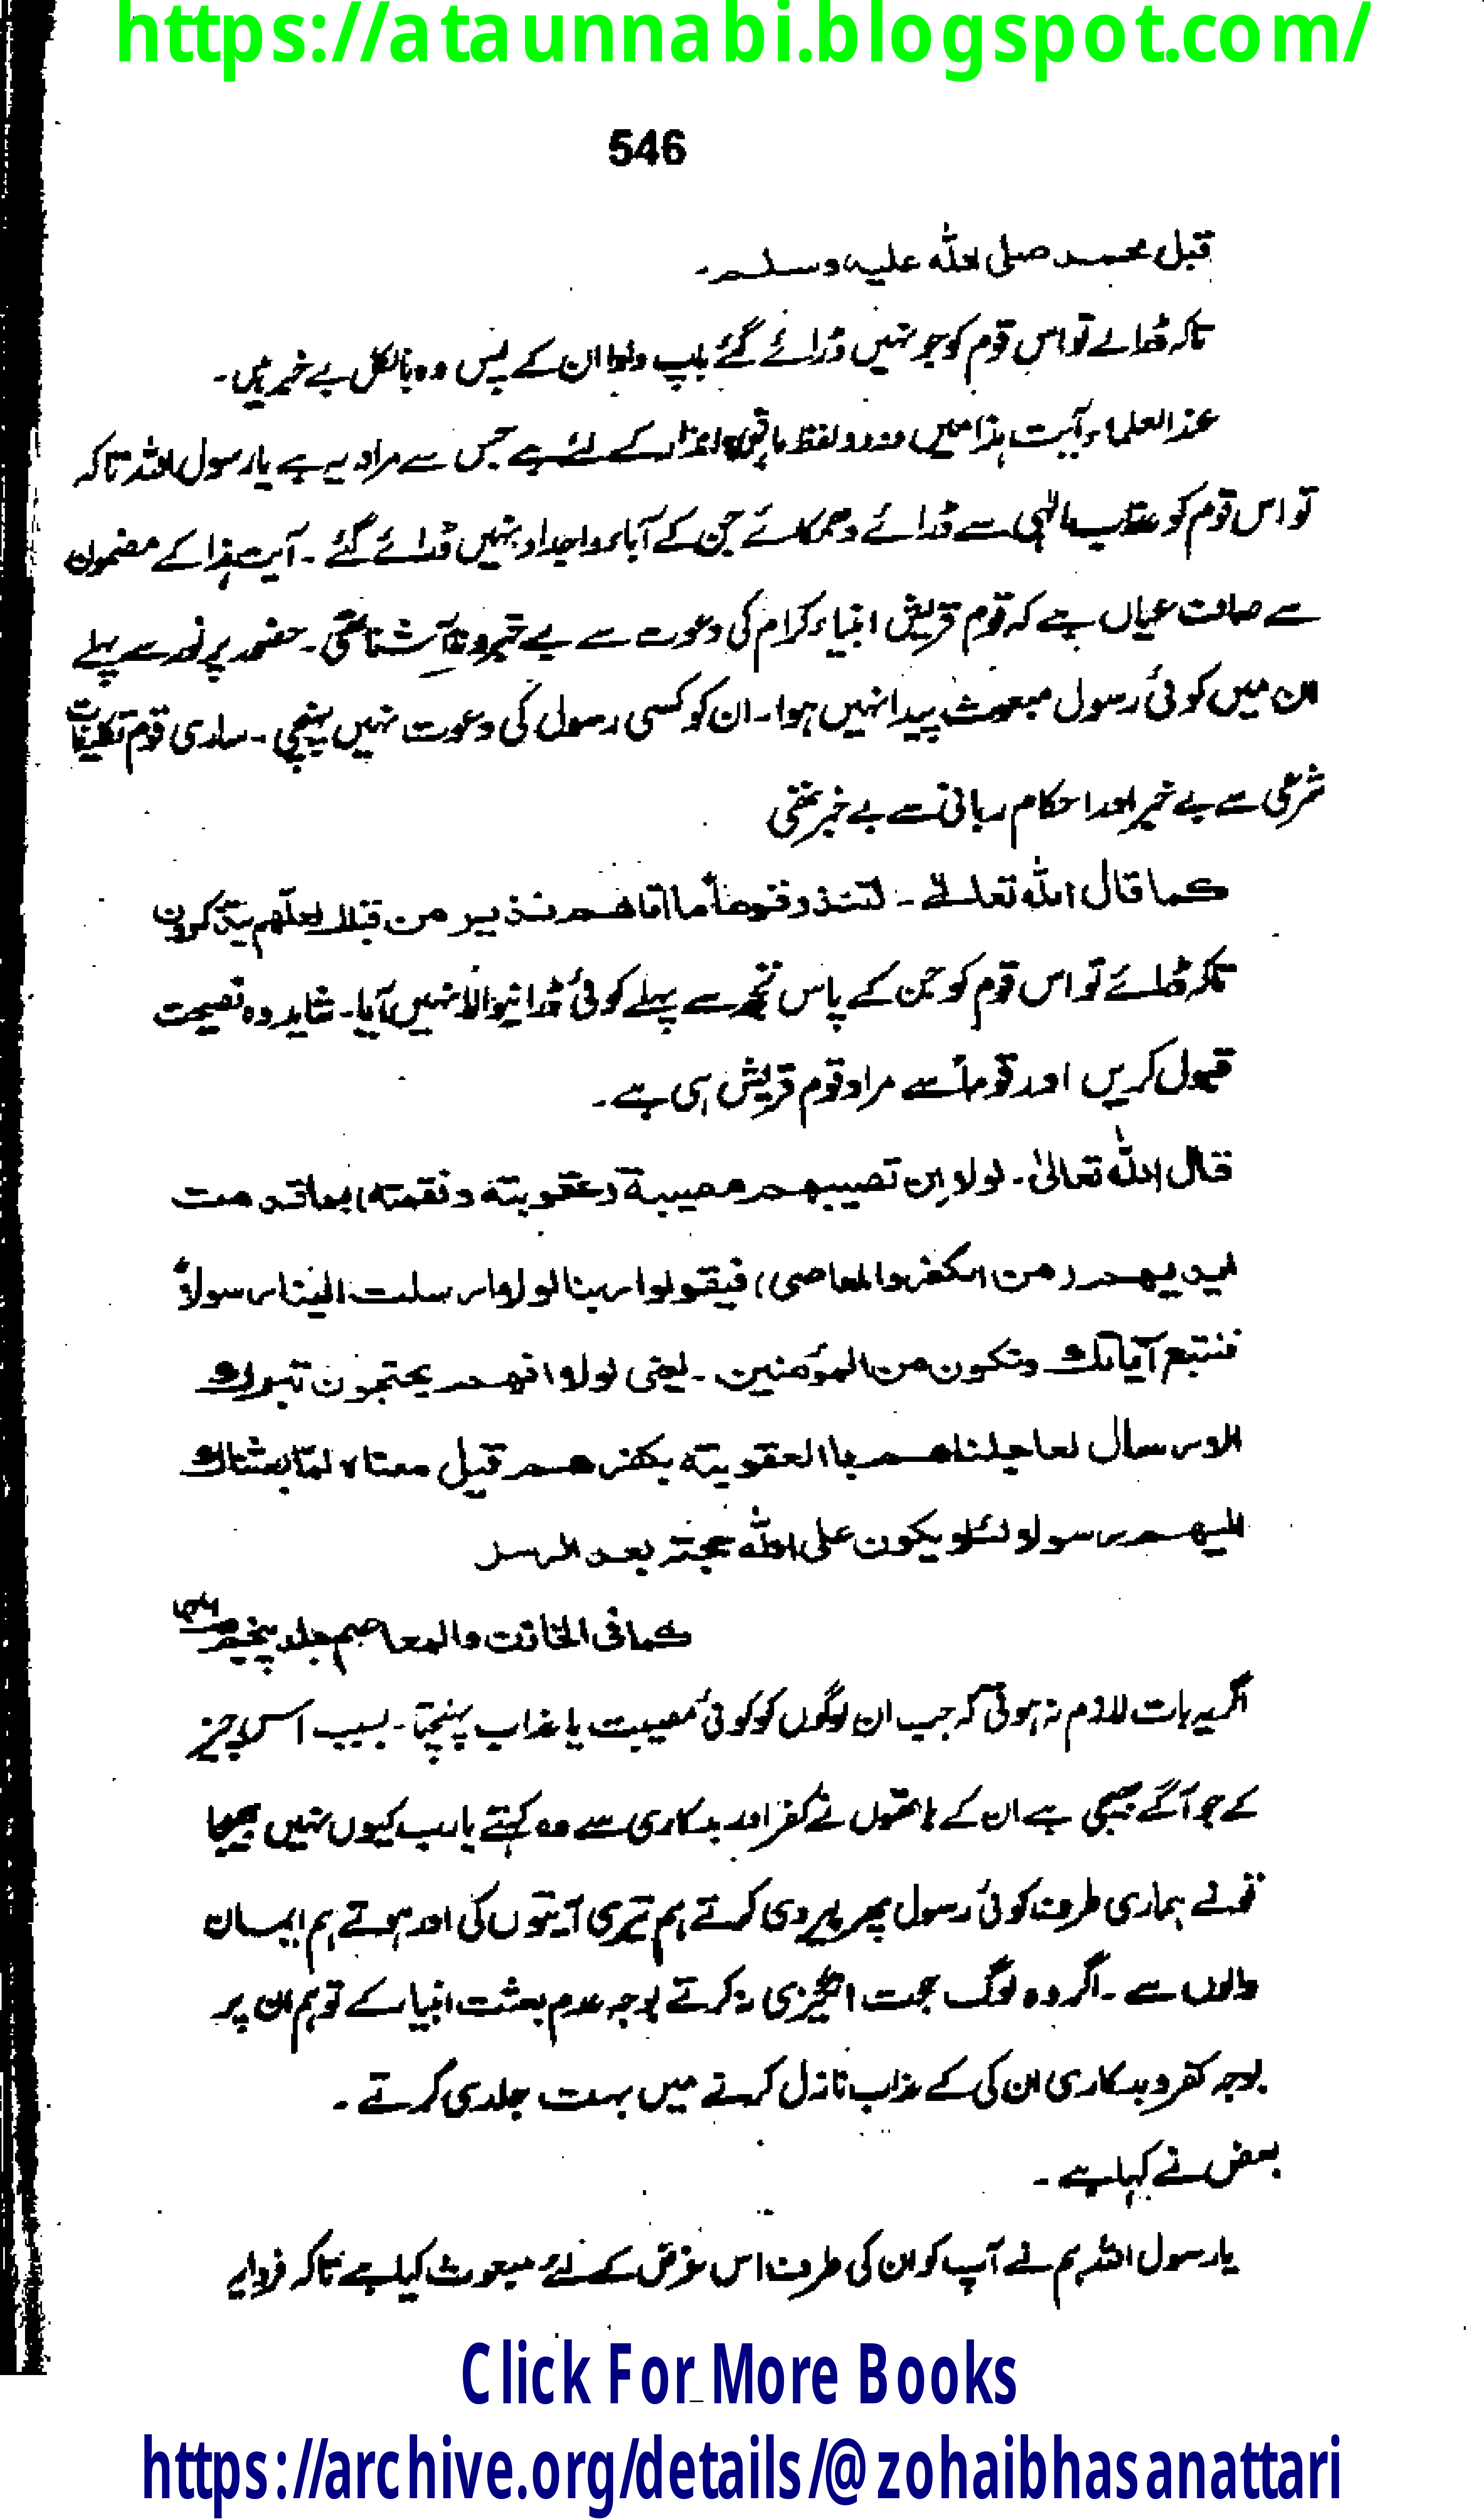 https://ataunnabi.blogspot.com/
546
قبل محمد صلی اللہ علیہ وسلم۔
تاکہ ڈرائے تو اس قوم کو جو نہیں ڈرائے گئے باپ دادا ان کے پس وہ بالکل بے خبر ہیں۔
عند العلماء آیت ہذا میں لفظ کے لئے ہے جس سے مراد یہ ہے یا رسول اللہ تاکہ
تو اس قوم کو عذاب الٰہی سے ڈرائے دھمکائے جن کے آباء و اجداد نہیں ڈرائے گئے۔ آیت ہذا کے مضمون
سے صاف عیاں ہے کہ قوم قریش انبیاء کرام کی دعوت سے بے خبر و ناآشنا تھی۔ حضور پر نور سے پہلے
ان میں کوئی رسول مبعوث پیدا نہیں ہوا۔ ان کو کسی رسول کی دعوت نہیں پہنچی۔ ساری قوم تکلیفات
شرعی سے بے خبر اور احکام ربانی سے بے خبر تھی
کما قال اللہ تعالےٰ۔ لتنذر قوماً ما اتاھم نذیر من قبلک لعلھم یتذکرون
تاکہ ڈرائے تو اس قوم کو جن کے پاس تجھ سے پہلے کوئی ڈرانیوالا نہیں آیا۔ شاید وہ نصیحت
قبول کریں اور قوماً سے مراد قوم قریش ہی ہے۔
قال اللہ تعالیٰ۔ لولا ان تصیبھم مصیبۃ (عقوبتہ ونقمتہ) بما قدمت
ایدیھم (من الکفر والمعاصی) فیقولوا ربنا لولا ارسلت الینا رسولاً
فنتبع آیاتک ونکون من المؤمنین۔ یعنی لولا انھم یحتجون بترک
الارسال لعاجلناھم باالعقوبتہ بکفرھم قیل معناہ لما بعثناک
الیھم رسولا لئلا یکون علی اللہ حجتہ بعد الرسل
کما فی الخازن والمعاصم جلد پنجم
اگر یہ بات لازم نہ ہوتی کہ جب ان لوگوں کو کوئی مصیبت یا عذاب پہنچتا۔ بسبب اس چیز
کے جو آگے بھیجی ہے ان کے ہاتھوں نے کفر اور بدکاری سے وہ کہتے یارب کیوں نہیں بھیجا
تونے ہماری طرف کوئی رسول پھر پیروی کرتے ہم تیری آیتوں کی اور ہوتے ہم ایمان
والوں سے۔ اگر وہ لوگ حجت انگیزی نہ کرتے بوجہ عدم بعثت انبیاء کے تو ہم ان پر
بوجہ کفر و بدکاری ان کی کے عذاب نازل کرتے میں بہت جلدی کرتے۔
بعض نے کہا ہے۔
یا رسول اللہ ہم نے آپ کو ان کی طرف اس غرض کے لئے مبعوث کیا ہے تاکہ فردائے
Click For More Books
https://archive.org/details/@zohaibhasanattari